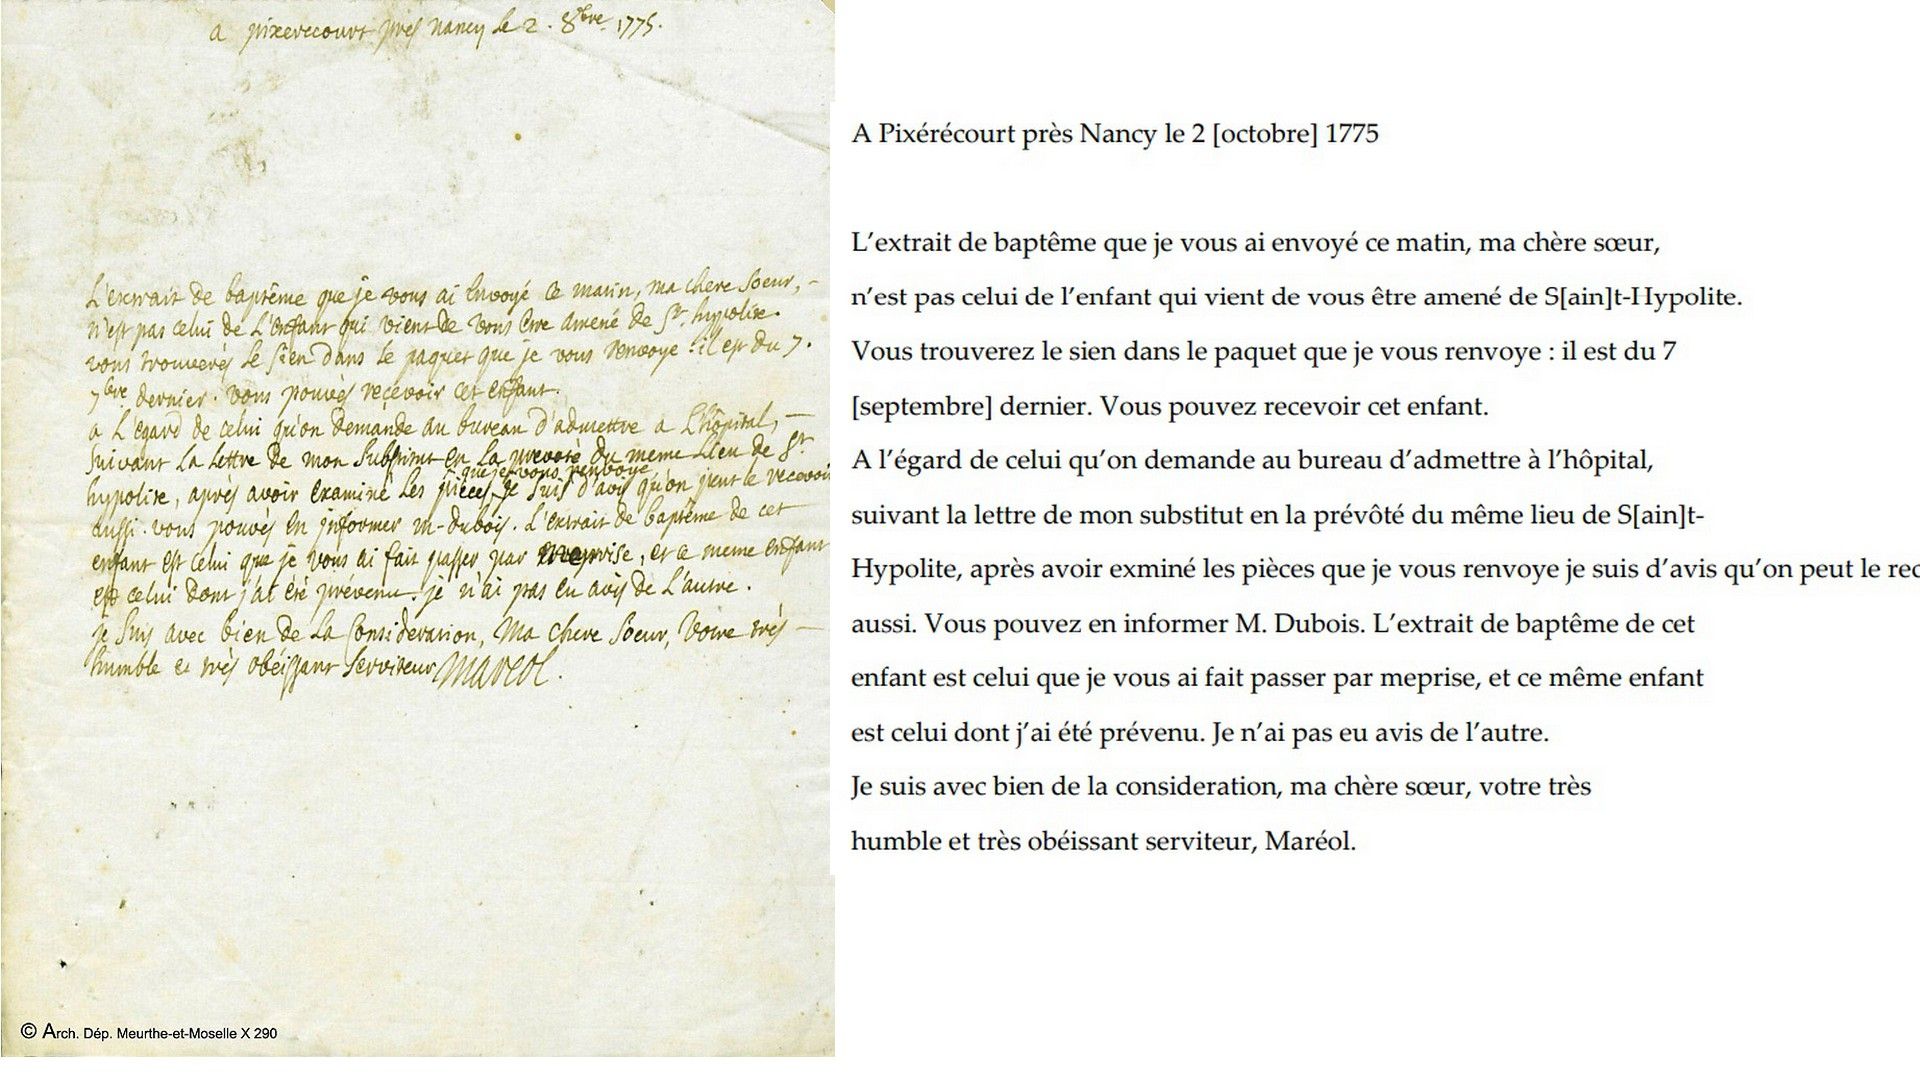 a pixerecourt près nancy le 2. 8bre 1775.
L'extrait de baptême que je vous ai Envoyé ce matin, ma chere Soeur, -
n'est pas celui de L'enfant qui vient de vous être amené de St. hypolite.
vous trouverés le Sien dans le paquet que je vous renvoye : il est du 7.
7bre dernier. vous pouvés recevoir cet enfant.
a L'egard de celui qu'on demande au bureau d'admettre a L'hôpital, —
Suivant La Lettre de mon Substitut en La prevoté du meme Lieu de St
que je vous renvoye
hypolite, après avoir examiné Les pièces, je Suis d'avis qu'on peut le recevoir
aussi. vous pouvés En jnformer m- dubois. L'extrait de baptême de cet
enfant est celui que je vous ai fait passer par meprise, et ce meme enfant
est celui dont j'ai été prévenu. je n'ai pas eu avis de L'autre.
je Suis avec bien de La Consideration, Ma chere Soeur, Votre très —
humble et très obéissant Serviteur Mareol.
© Arch. Dép. Meurthe-et-Moselle X 290
A Pixérécourt près Nancy le 2 [octobre] 1775
L'extrait de baptême que je vous ai envoyé ce matin, ma chère sœur,
n'est pas celui de l'enfant qui vient de vous être amené de S[ain]t-Hypolite.
Vous trouverez le sien dans le paquet que je vous renvoye : il est du 7
[septembre] dernier. Vous pouvez recevoir cet enfant.
A l'égard de celui qu'on demande au bureau d'admettre à l'hôpital,
suivant la lettre de mon substitut en la prévôté du même lieu de S[ain]t-
Hypolite, après avoir exminé les pièces que je vous renvoye je suis d'avis qu'on peut le rec
aussi. Vous pouvez en informer M. Dubois. L'extrait de baptême de cet
enfant est celui que je vous ai fait passer par meprise, et ce même enfant
est celui dont j'ai été prévenu. Je n'ai pas eu avis de l'autre.
Je suis avec bien de la consideration, ma chère sœur, votre très
humble et très obéissant serviteur, Maréol.